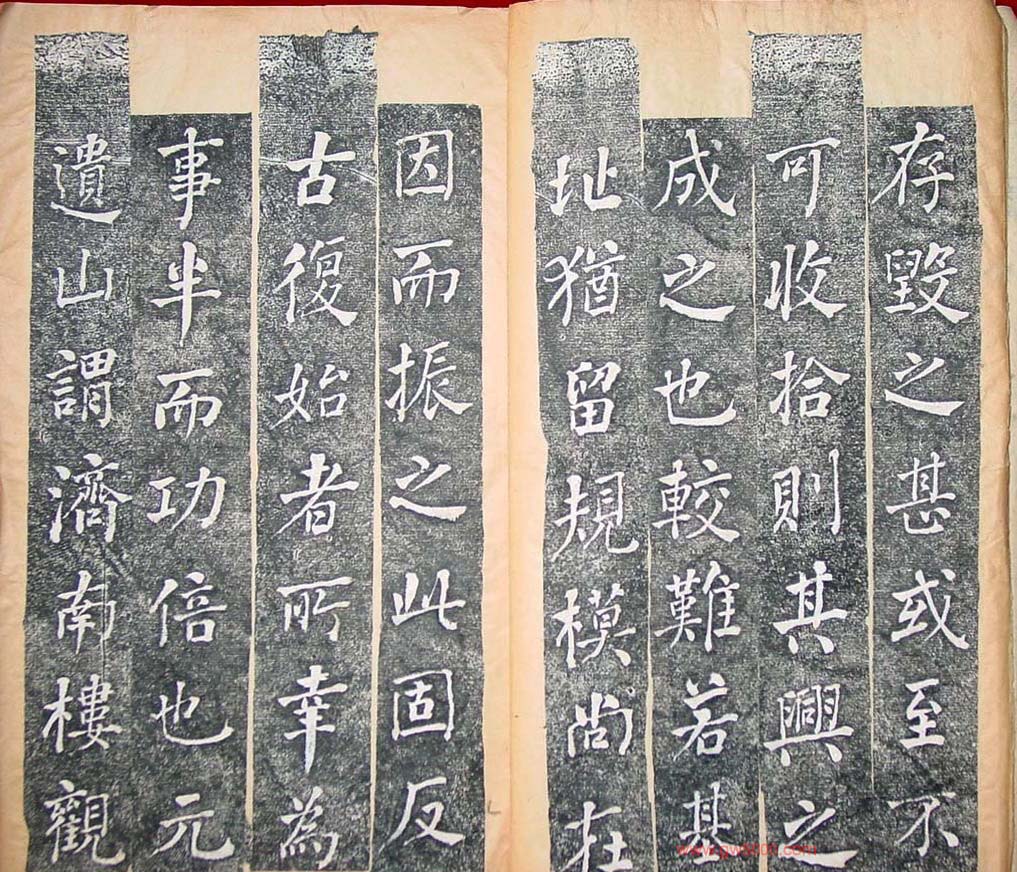 存毀之甚或至不
可收拾則其興之
成之也較難若其
址猶留規模尚在
因而振之此固反
古復始者所幸為
事半而功倍也元
遺山謂濟南樓觀